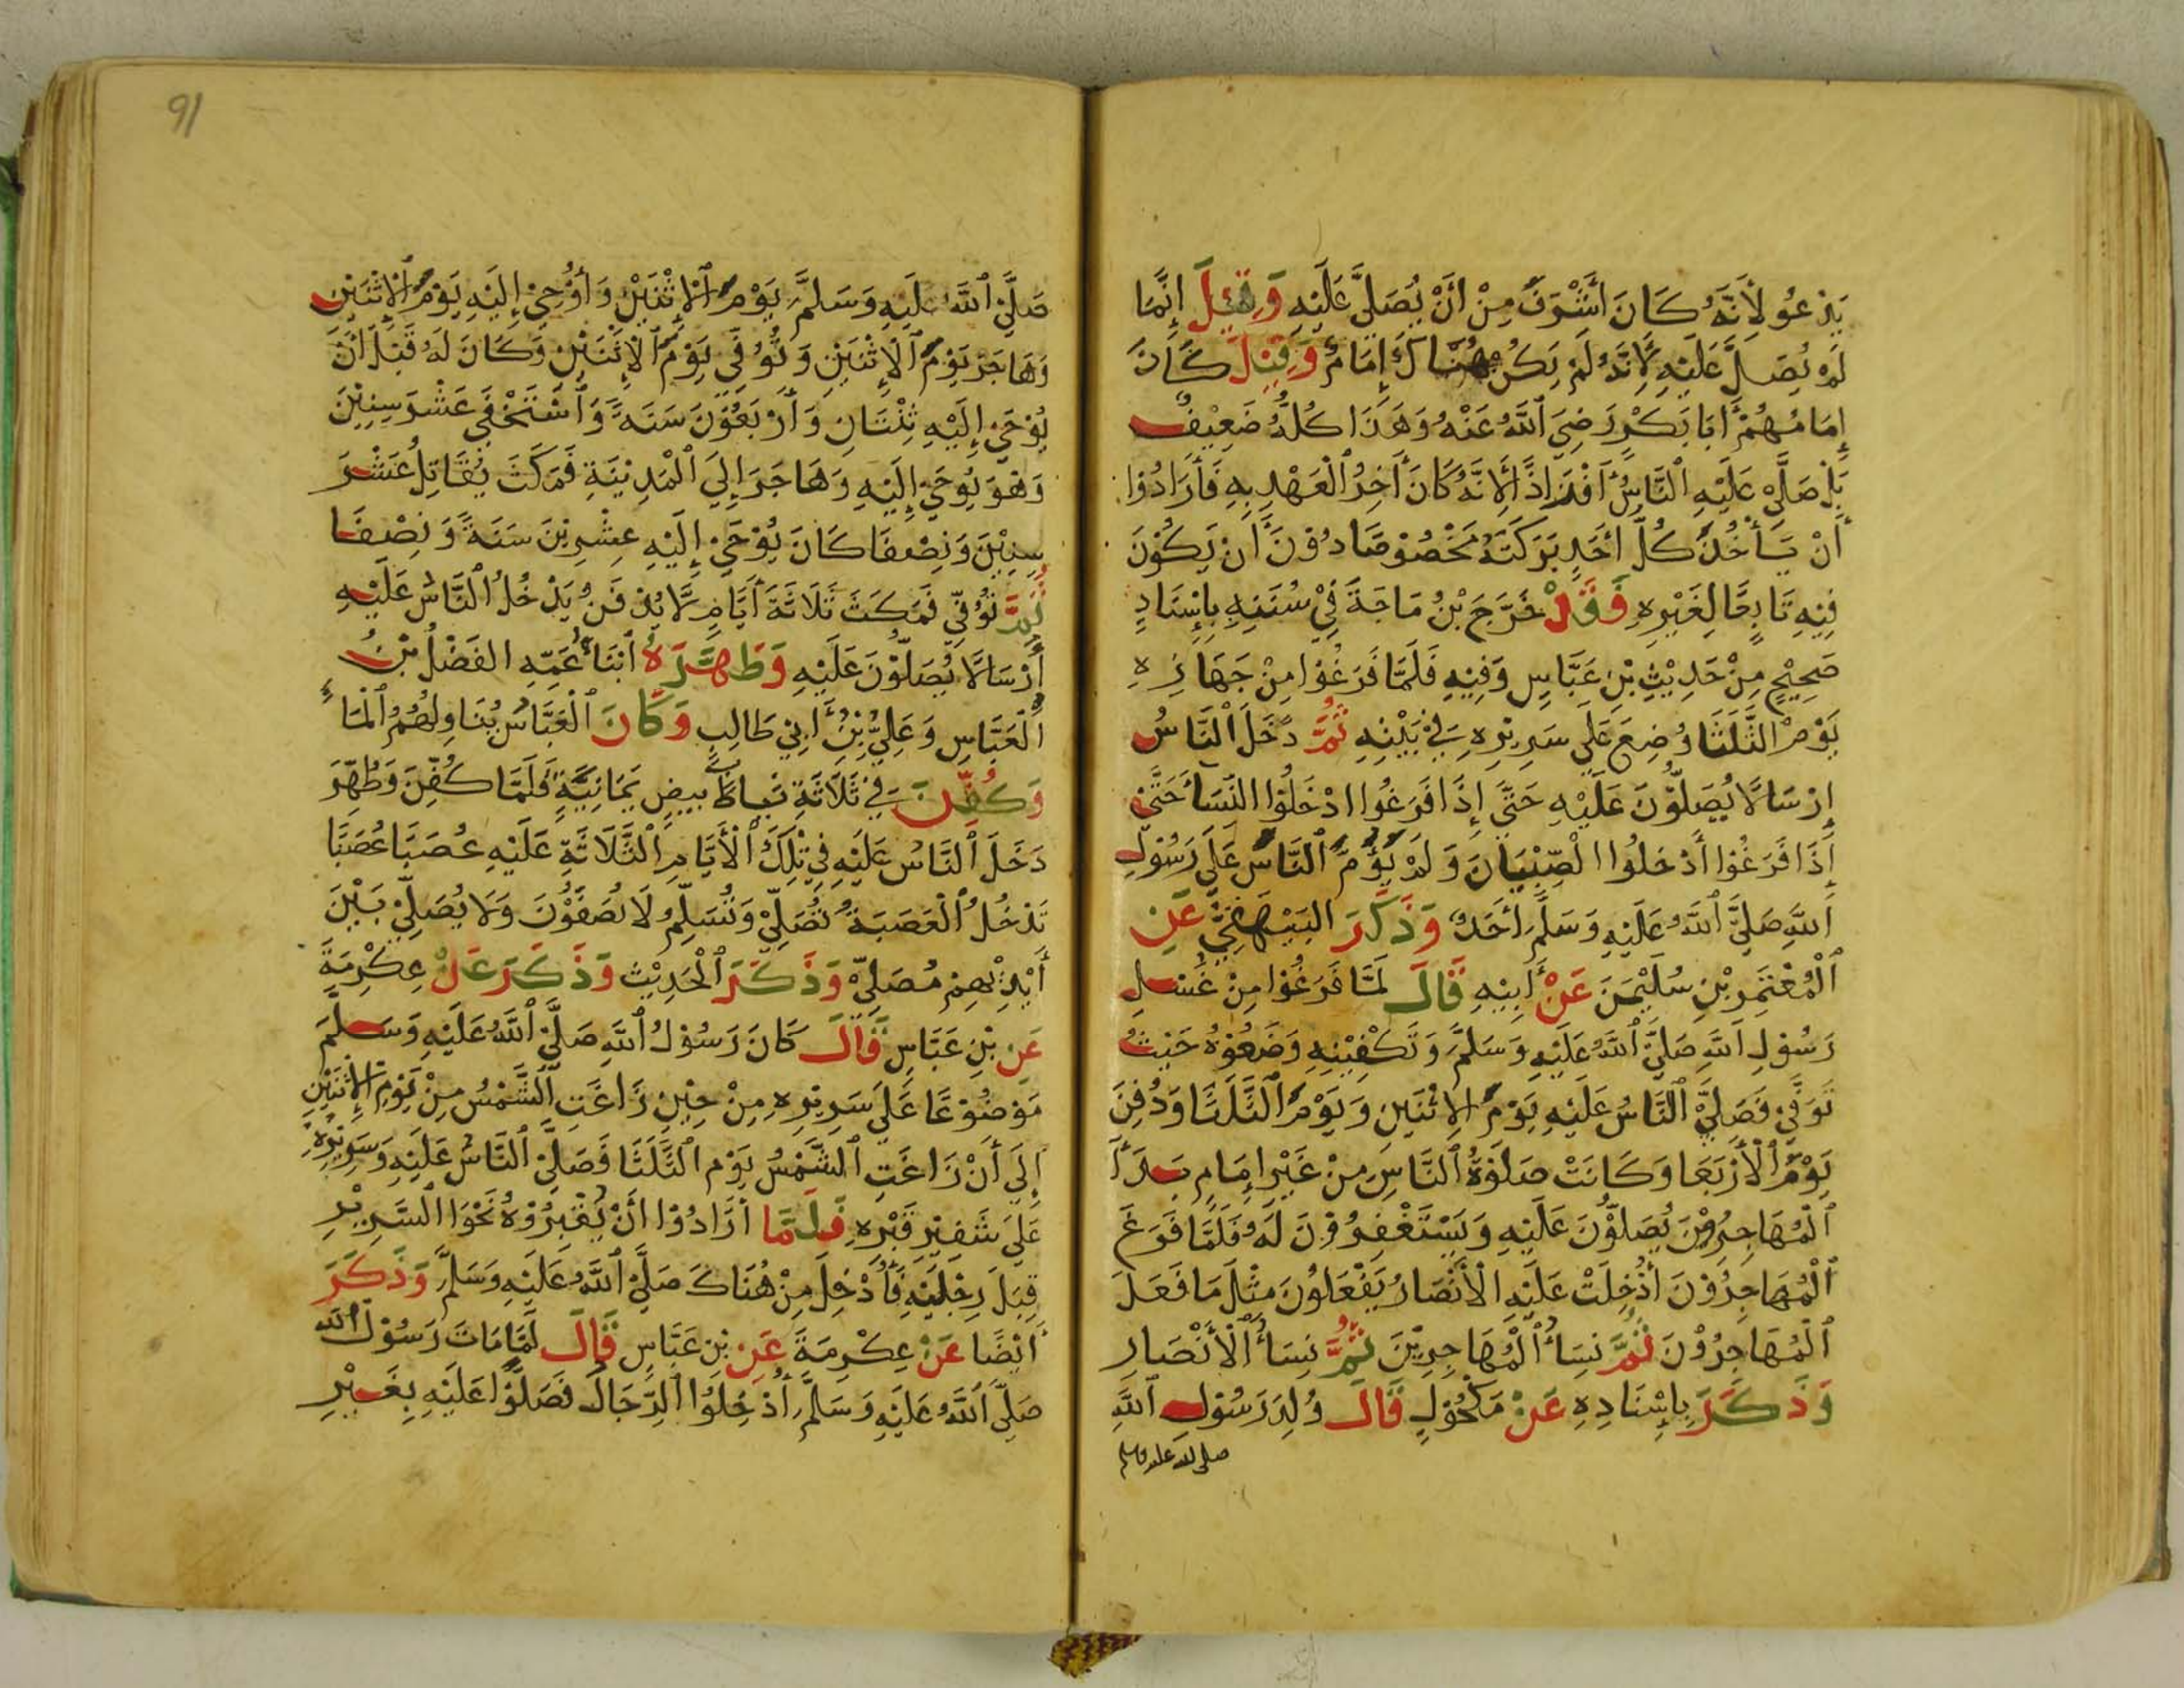 يَدْعُو لِأَنَّهُ كَانَ أَشْرَفَ مِنْ أَنْ يُصَلِّيَ عَلَيْهِ وَقِيْلَ إِنَّمَا
لَمْ يُصَلَّ عَلَيْهِ لِأَنَّهُ لَمْ يَكُنْ هُنَاكَ إِمَامٌ وَقِيْلَ كَانَ
إِمَامُهُمْ أَبَا بَكْرٍ رَضِيَ اللَّهُ عَنْهُ وَهَذَا كُلُّهُ ضَعِيْفٌ
بَلْ صَلَّى عَلَيْهِ النَّاسُ أَفْذَاذًا لِأَنَّهُ كَانَ أَخِرُ الْعَهْدِ بِهِ فَأَرَادُوْا
أَنْ يَأْخُذَ كُلُّ أَحَدٍ بَرَكَتَهُ مَخْصُوْصًا دُوْنَ أَنْ يَكُوْنَ
فِيْهِ تَابِعًا لِغَيْرِهِ فَقَدْ خَرَّجَ بْنُ مَاجَةَ فِيْ سُنَنِهِ بِإِسْنَادٍ
صَحِيْحٍ مِنْ حَدِيْثِ بْنِ عَبَّاسٍ وَفِيْهِ فَلَمَّا فَرَغُوْا مِنْ جَهَازِهِ
يَوْمَ الثَّلَثَا وُضِعَ عَلَى سَرِيْرِهِ فِيْ بَيْتِهِ ثُمَّ دَخَلَ النَّاسُ
إِرْسَالًا يُصَلُّوْنَ عَلَيْهِ حَتَّى إِذَا فَرَغُوا ادْخَلُوْا النِّسَأَ حَتَّى
إِذَا فَرَغُوْا أَدْخَلُوا الصِّبْيَانَ وَلَمْ يَؤُمَّ النَّاسَ عَلَى رَسُوْلِ
اللَّهِ صَلَّى اللَّهُ عَلَيْهِ وَسَلَّمَ أَحَدٌ وَذَكَرَ البَيْهَقِيُّ عَنِ
الْمُعْتَمِرِ بْنِ سُلَيْمَنَ عَنْ أَبِيْهِ قَالَ لَمَّا فَرَغُوْا مِنْ غُسْلِ
رَسُوْلِ اللَّهِ صَلَّى اللَّهُ عَلَيْهِ وَسَلَّمَ وَتَكْفِيْنِهِ وَضَعُوْهُ حَيْثُ
تُوُفِّيَ فَصَلَّى النَّاسُ عَلَيْهِ يَوْمَ الِاثْنَيْنِ وَيَوْمَ الثَّلَثَا وَدُفِنَ
يَوْمَ الْأَرْبَعَا وَكَانَتْ صَلَوةُ النَّاسِ مِنْ غَيْرِ إِمَامٍ بَدَأَ
الْمُهَاجِرُوْنَ يُصَلُّوْنَ عَلَيْهِ وَيَسْتَغْفِرُوْنَ لَهُ فَلَمَّا فَرَغَ
الْمُهَاجِرُوْنَ أُدْخِلَتْ عَلَيْهِ الْأَنْصَارُ يَفْعَلُوْنَ مِثْلَ مَا فَعَلَ
الْمُهَاجِرُوْنَ ثُمَّ نِسَأُ الْمُهَاجِرِيْنَ ثُمَّ نِسَأُ الْأَنْصَارِ
وَذَكَرَ بِإِسْنَادِهِ عَنْ مَكْحُوْلٍ قَالَ وُلِدَ رَسُوْلُ اللَّهِ
صلى الله عليه وسلم
91
صَلَّى اللَّهُ عَلَيْهِ وَسَلَّمَ يَوْمَ الْإِثْنَيْنِ وَأُوْحِيَ إِلَيْهِ يَوْمَ الْإِثْنَيْنِ
وَهَاجَرَ يَوْمَ الْإِثْنَيْنِ وَتُوُفِّيَ يَوْمَ الْإِثْنَيْنِ وَكَانَ لَهُ قَبْلَ أَنْ
يُوْحَى إِلَيْهِ ثِنْتَانِ وَأَرْبَعُوْنَ سَنَةً وَاسْتَخْفَى عَشْرَ سِنِيْنَ
وَهْوَ يُوْحَى إِلَيْهِ وَهَاجَرَ إِلَى الْمَدِيْنَةِ فَمَكَثَ يُقَاتِلُ عَشْرَ
سِنِيْنَ وَنِصْفًا كَانَ يُوْحَى إِلَيْهِ عِشْرِيْنَ سَنَةً وَنِصْفًا
ثُمَّ تُوُفِّيَ فَمَكَثَ ثَلَاثَةَ أَيَّامٍ لَّا يُدْفَنُ يَدْخُلُ النَّاسُ عَلَيْهِ
أَرْسَالًا يُصَلُّوْنَ عَلَيْهِ وَطَهَّرَهُ ابْنَا عَمِّهِ الفَضْلُ بْنُ
الْعَبَّاسِ وَعَلِيُّ بْنُ أَبِي طَالِبٍ وَكَانَ الْعَبَّاسُ يُنَاوِلُهُمُ الْمَاءَ
وَكُفِّنَ فِيْ ثَلَاثَةِ رِيَاطٍ بِيضٍ يَمَانِيَّةٍ فَلَمَّا كُفِّنَ وَطُهِّرَ
دَخَلَ النَّاسُ عَلَيْهِ فِي تِلْكَ الْأَيَّامِ الثَّلَاثَةِ عَلَيْهِ عُصَبًا عُصَبًا
تَدْخُلُ الْعَصَبَةُ تُصَلِّيْ وَتُسَلِّمُ لَا يُصَفُّوْنَ وَلَا يُصَلِّيْ بَيْنَ
أَيْدِيْهِمْ مُصَلِّيْ وَذَكَرَ الْحَدِيْثَ وَذَكَرَ عَنْ عِكْرِمَةَ
عَنِ بْنِ عَبَّاسٍ قَالَ كَانَ رَسُوْلُ اللَّهِ صَلَّى اللَّهُ عَلَيْهِ وَسَلَّمَ
مَوْضُوْعًا عَلَى سَرِيْرِهِ مِنْ حِيْنِ زَاغَتِ الشَّمْسُ مِنْ يَوْمِ الْإِثْنَيْنِ
إِلَى أَنْ زَاغَتِ الشَّمْسُ يَوْمَ الثَّلَثَا فَصَلَّى النَّاسُ عَلَيْهِ وَسَرِيْرُهُ
عَلَى شَفِيْرِ قَبْرِهِ فَلَمَّا أَرَادُوْا أَنْ يُقْبِرُوْهُ نَحَّوُا السَّرِيْرَ
قِبَلَ رِجْلَيْهِ فَأُدْخِلَ مِنْ هُنَاكَ صَلَّى اللَّهُ عَلَيْهِ وَسَلَّمَ وَذَكَرَ
أَيْضًا عَنْ عِكْرِمَةَ عَنِ بْنِ عَبَّاسٍ قَالَ لَمَّا مَاتَ رَسُوْلُ اللَّه
صَلَّى اللَّهُ عَلَيْهِ وَسَلَّمَ أُدْخِلُوا الرِّجَالُ فَصَلَّوْا عَلَيْهِ بِغَيْرِ